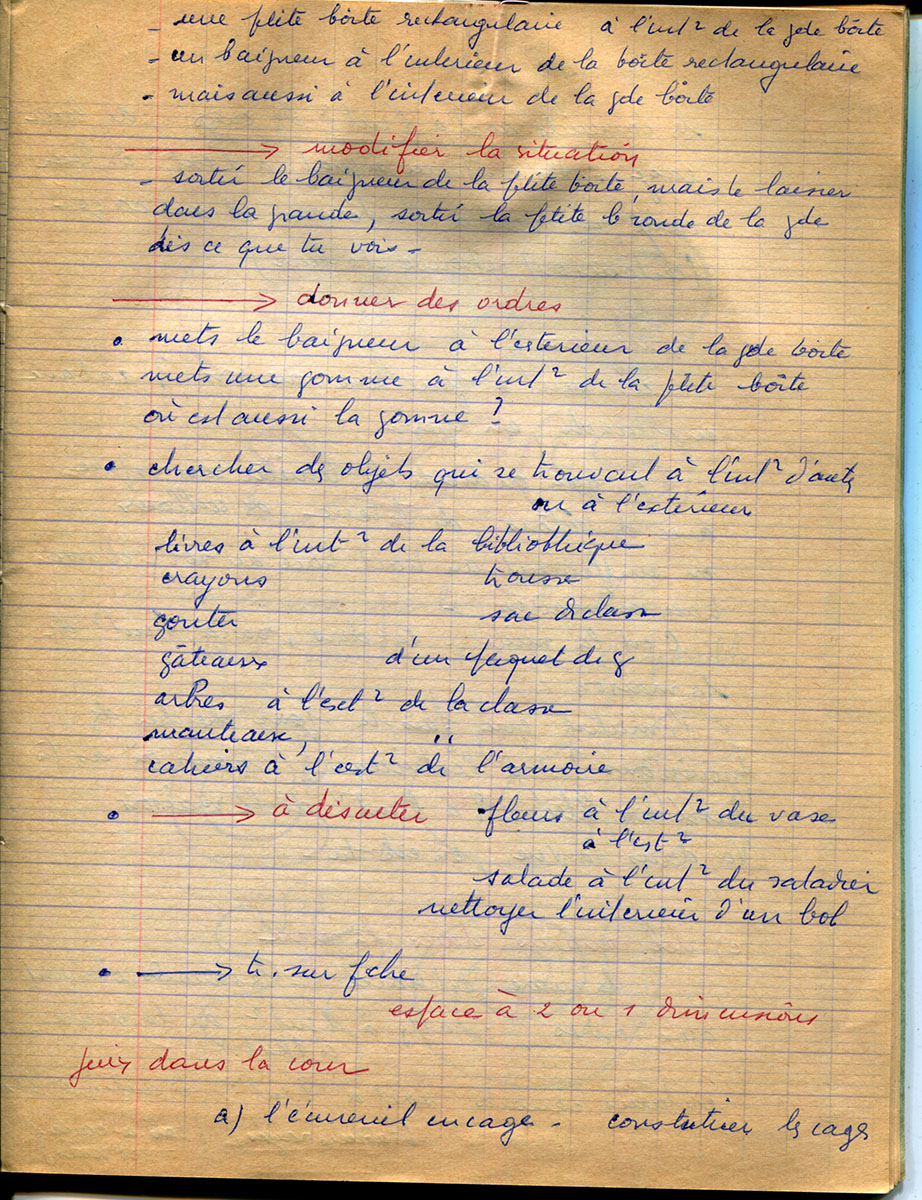 - une ptite boîte rectangulaire à l'int² de la gde boîte
- un baigneur à l'intérieur de la boîte rectangulaire
- mais aussi à l'intérieur de la gde boîte
modifier la situation
- sortir le baigneur de la ptite boîte, mais le laisser
dans la grande, sortir la ptite b ronde de la gde
dis ce que tu vois -
donner des ordres
• mets le baigneur à l'extérieur de la gde boîte
mets une gomme à l'int² de la ptite boîte
où est aussi la gomme ?
• chercher des objets qui se trouvent à l'int² d'autres
ou à l'extérieur
livres à l'int² de la bibliothèque
crayons trousse
gouter sac de classe
gâteaux d'un paquet de g
arbres à l'ext² de la classe
manteaux, "
cahiers à l'ext² de l'armoire
• à discuter fleurs à l'int² du vase
à l'ext²
salade à l'int² du saladier
nettoyer l'intérieur d'un bol
• tr. sur fiche
espace à 2 ou 1 dimensions
jeux dans la cour
a) l'écureuil en cage - constituer les cages